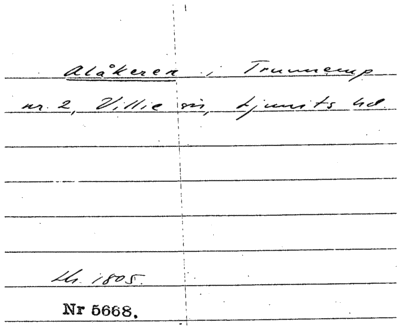 Alåkeren i Trunnerup
nr. 2, Villie sn, Ljunits hd.
Lhr. 1805.
Nr 5668.